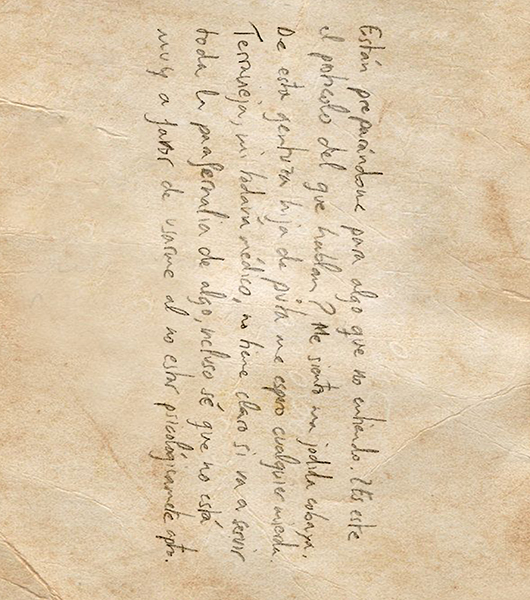 Están preparándome para algo que no entiendo. ¿Es este
el protocolo del que hablan? Me siento una jodida cobaya.
De esta gentuza hija de puta me espero cualquier mierda.
Terraneja, mi todavía médico, no tiene claro si va a servir
toda la parafernalia de algo, incluso sé que no está
muy a favor de usarme al no estar psicológicamente apto.